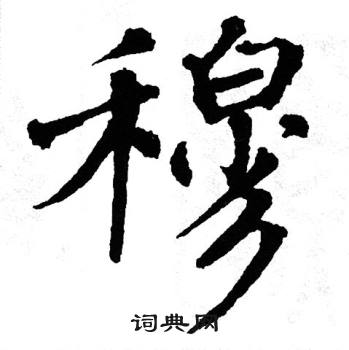 穆
词典网